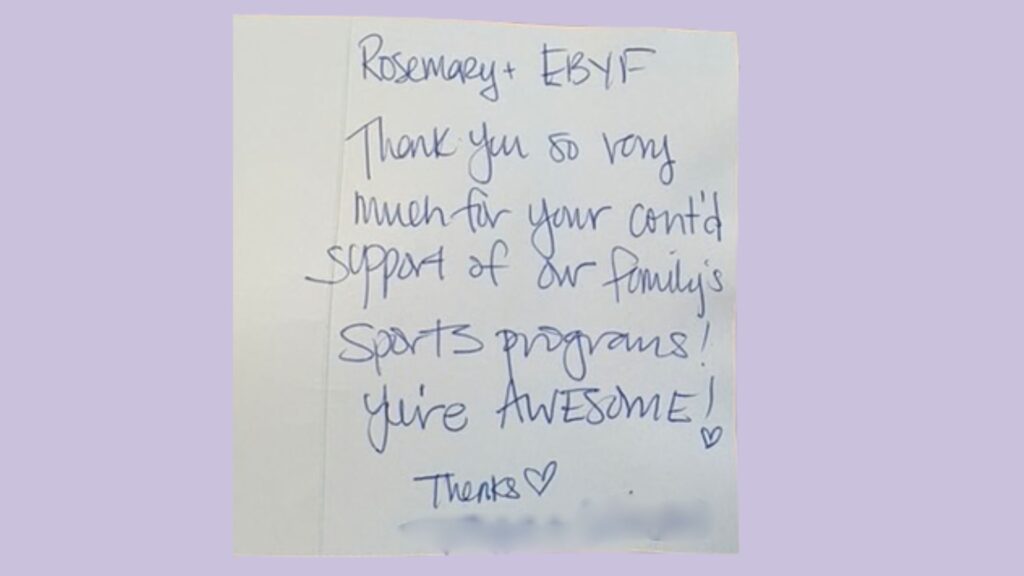 Rosemary + EBYF
Thank you so very
much for your cont'd
support of our family's
sports programs!
You're AWESOME!
Thanks